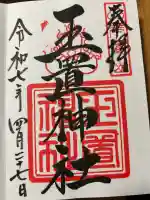 奉拝
玉置神社
令和七年四月二十七日